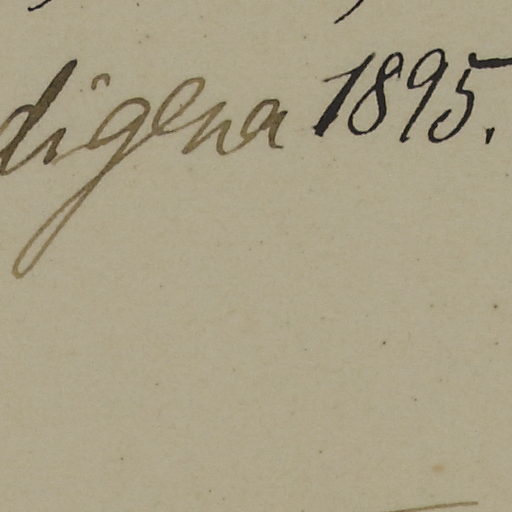 digena 1895.